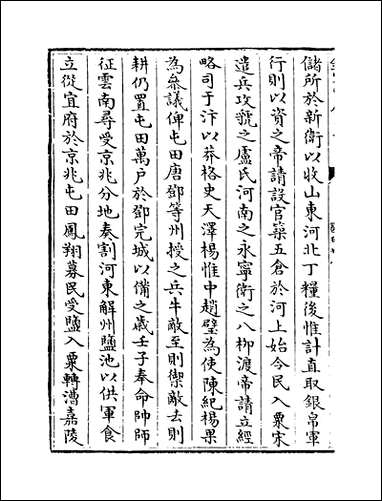 儲所於新衛以收山東河北丁糧後惟計直取銀帛軍
行則以資之帝請設官築五倉於河上始令民入粟宋
遣兵攻虢之盧氏河南之永寧衛之八柳渡帝請立經
略司于汴以莽格史天澤楊惟中趙璧為使陳紀楊果
為叅議俾屯田唐鄧等州授之兵牛敵至則禦敵去則
耕仍置屯田萬戶於鄧完城以備之歳壬子奉命帥師
征雲南尋受京兆分地奏割河東解州鹽池以供軍食
立從宜府於京兆屯田鳳翔募民受鹽入粟轉漕嘉陵